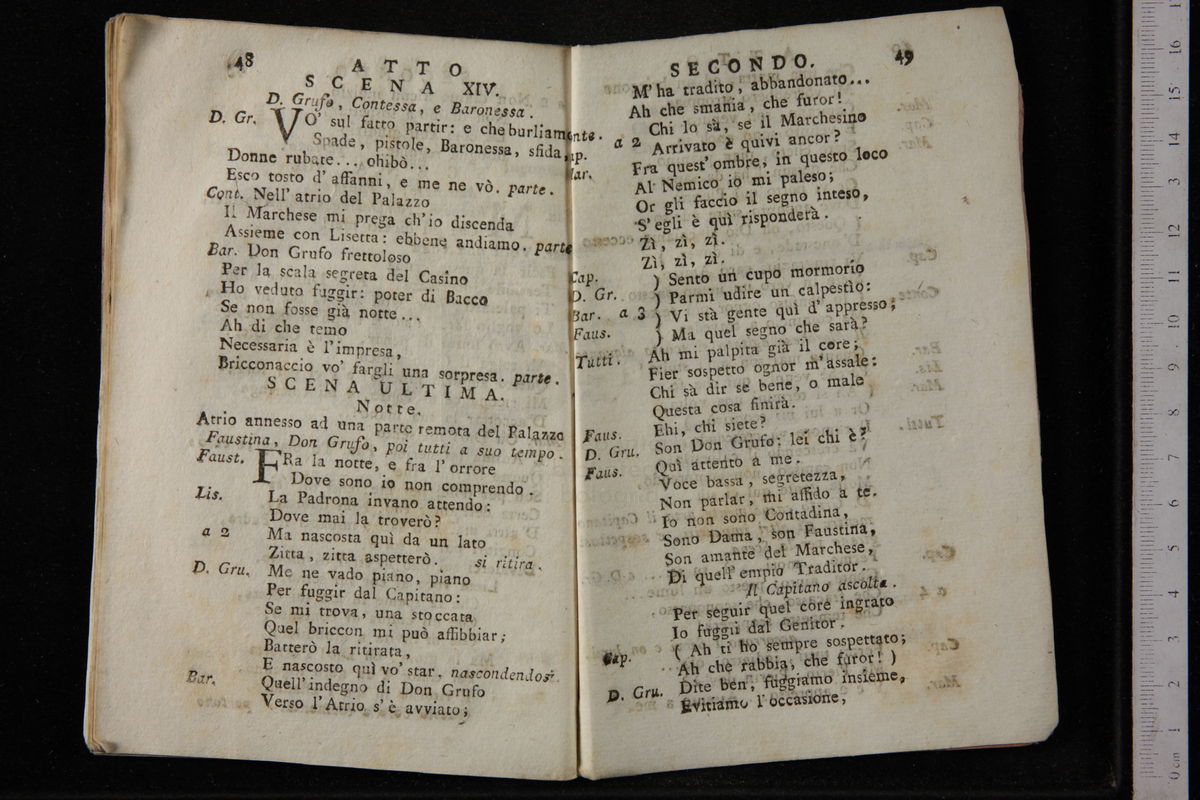 48
ATTO
SCENA XIV.
D. Grufo, Contessa, e Baronessa.
D. Gr. VO' sul fatto partir: e che burliamente.
Spade, pistole, Baronessa, sfida,
Donne rubate... ohibò...
Esco tosto d'affanni, e me ne vò. parte.
Cont. Nell'atrio del Palazzo
Il Marchese mi prega ch'io discenda
Assieme con Lisetta: ebbene andiamo. parte
Bar. Don Grufo frettoloso
Per la scala segreta del Casino
Ho veduto fuggir: poter di Bacco
Se non fosse già notte...
Ah di che temo
Necessaria è l'impresa,
Bricconaccio vo' fargli una sorpresa. parte.
SCENA ULTIMA.
Notte.
Atrio annesso ad una parte remota del Palazzo
Faustina, Don Grufo, poi tutti a suo tempo.
Faust. FRa la notte, e fra l'orrore
Dove sono io non comprendo.
Lis. La Padrona invano attendo:
Dove mai la troverò?
a 2 Ma nascosta quì da un lato
Zitta, zitta aspetterò. si ritira.
D. Gru. Me ne vado piano, piano
Per fuggir dal Capitano:
Se mi trova, una stoccata
Quel briccon mi può affibbiar;
Batterò la ritirata,
E nascosto quì vo' star. nascondendosi.
Bar. Quell'indegno di Don Grufo
Verso l'Atrio s'è avviato;
SECONDO. 49
M'ha tradito, abbandonato...
Ah che smania, che furor!
Chi lo sà, se il Marchesino
a 2 Arrivato è quivi ancor?
Cap. Fra quest'ombre, in questo loco
Mar. Al Nemico io mi paleso;
Or gli faccio il segno inteso,
S'egli è quì risponderà.
Zì, zì, zì.
Zì, zì, zì.
Cap. ) Sento un cupo mormorio
D. Gr. ) Parmi udire un calpestìo:
Bar. a 3 ) Vi stà gente quì d'appresso;
Faus. ) Ma quel segno che sarà?
Tutti. Ah mi palpita già il core;
Fier sospetto ognor m'assale:
Chi sà dir se bene, o male
Questa cosa finirà.
Faus. Ehi, chi siete?
D. Gru. Son Don Grufo: lei chi è?
Faus. Quì attento a me.
Voce bassa, segretezza,
Non parlar, mi affido a te.
Io non sono Contadina,
Sono Dama, son Faustina,
Son amante del Marchese,
Di quell'empio Traditor.
Il Capitano ascolta.
Per seguir quel core ingrato
Io fuggii dal Genitor.
Cap. ( Ah ti ho sempre sospettato;
Ah che rabbia, che furor! )
D. Gru. Dite ben, fuggiamo insieme,
Evitiamo l'occasione,